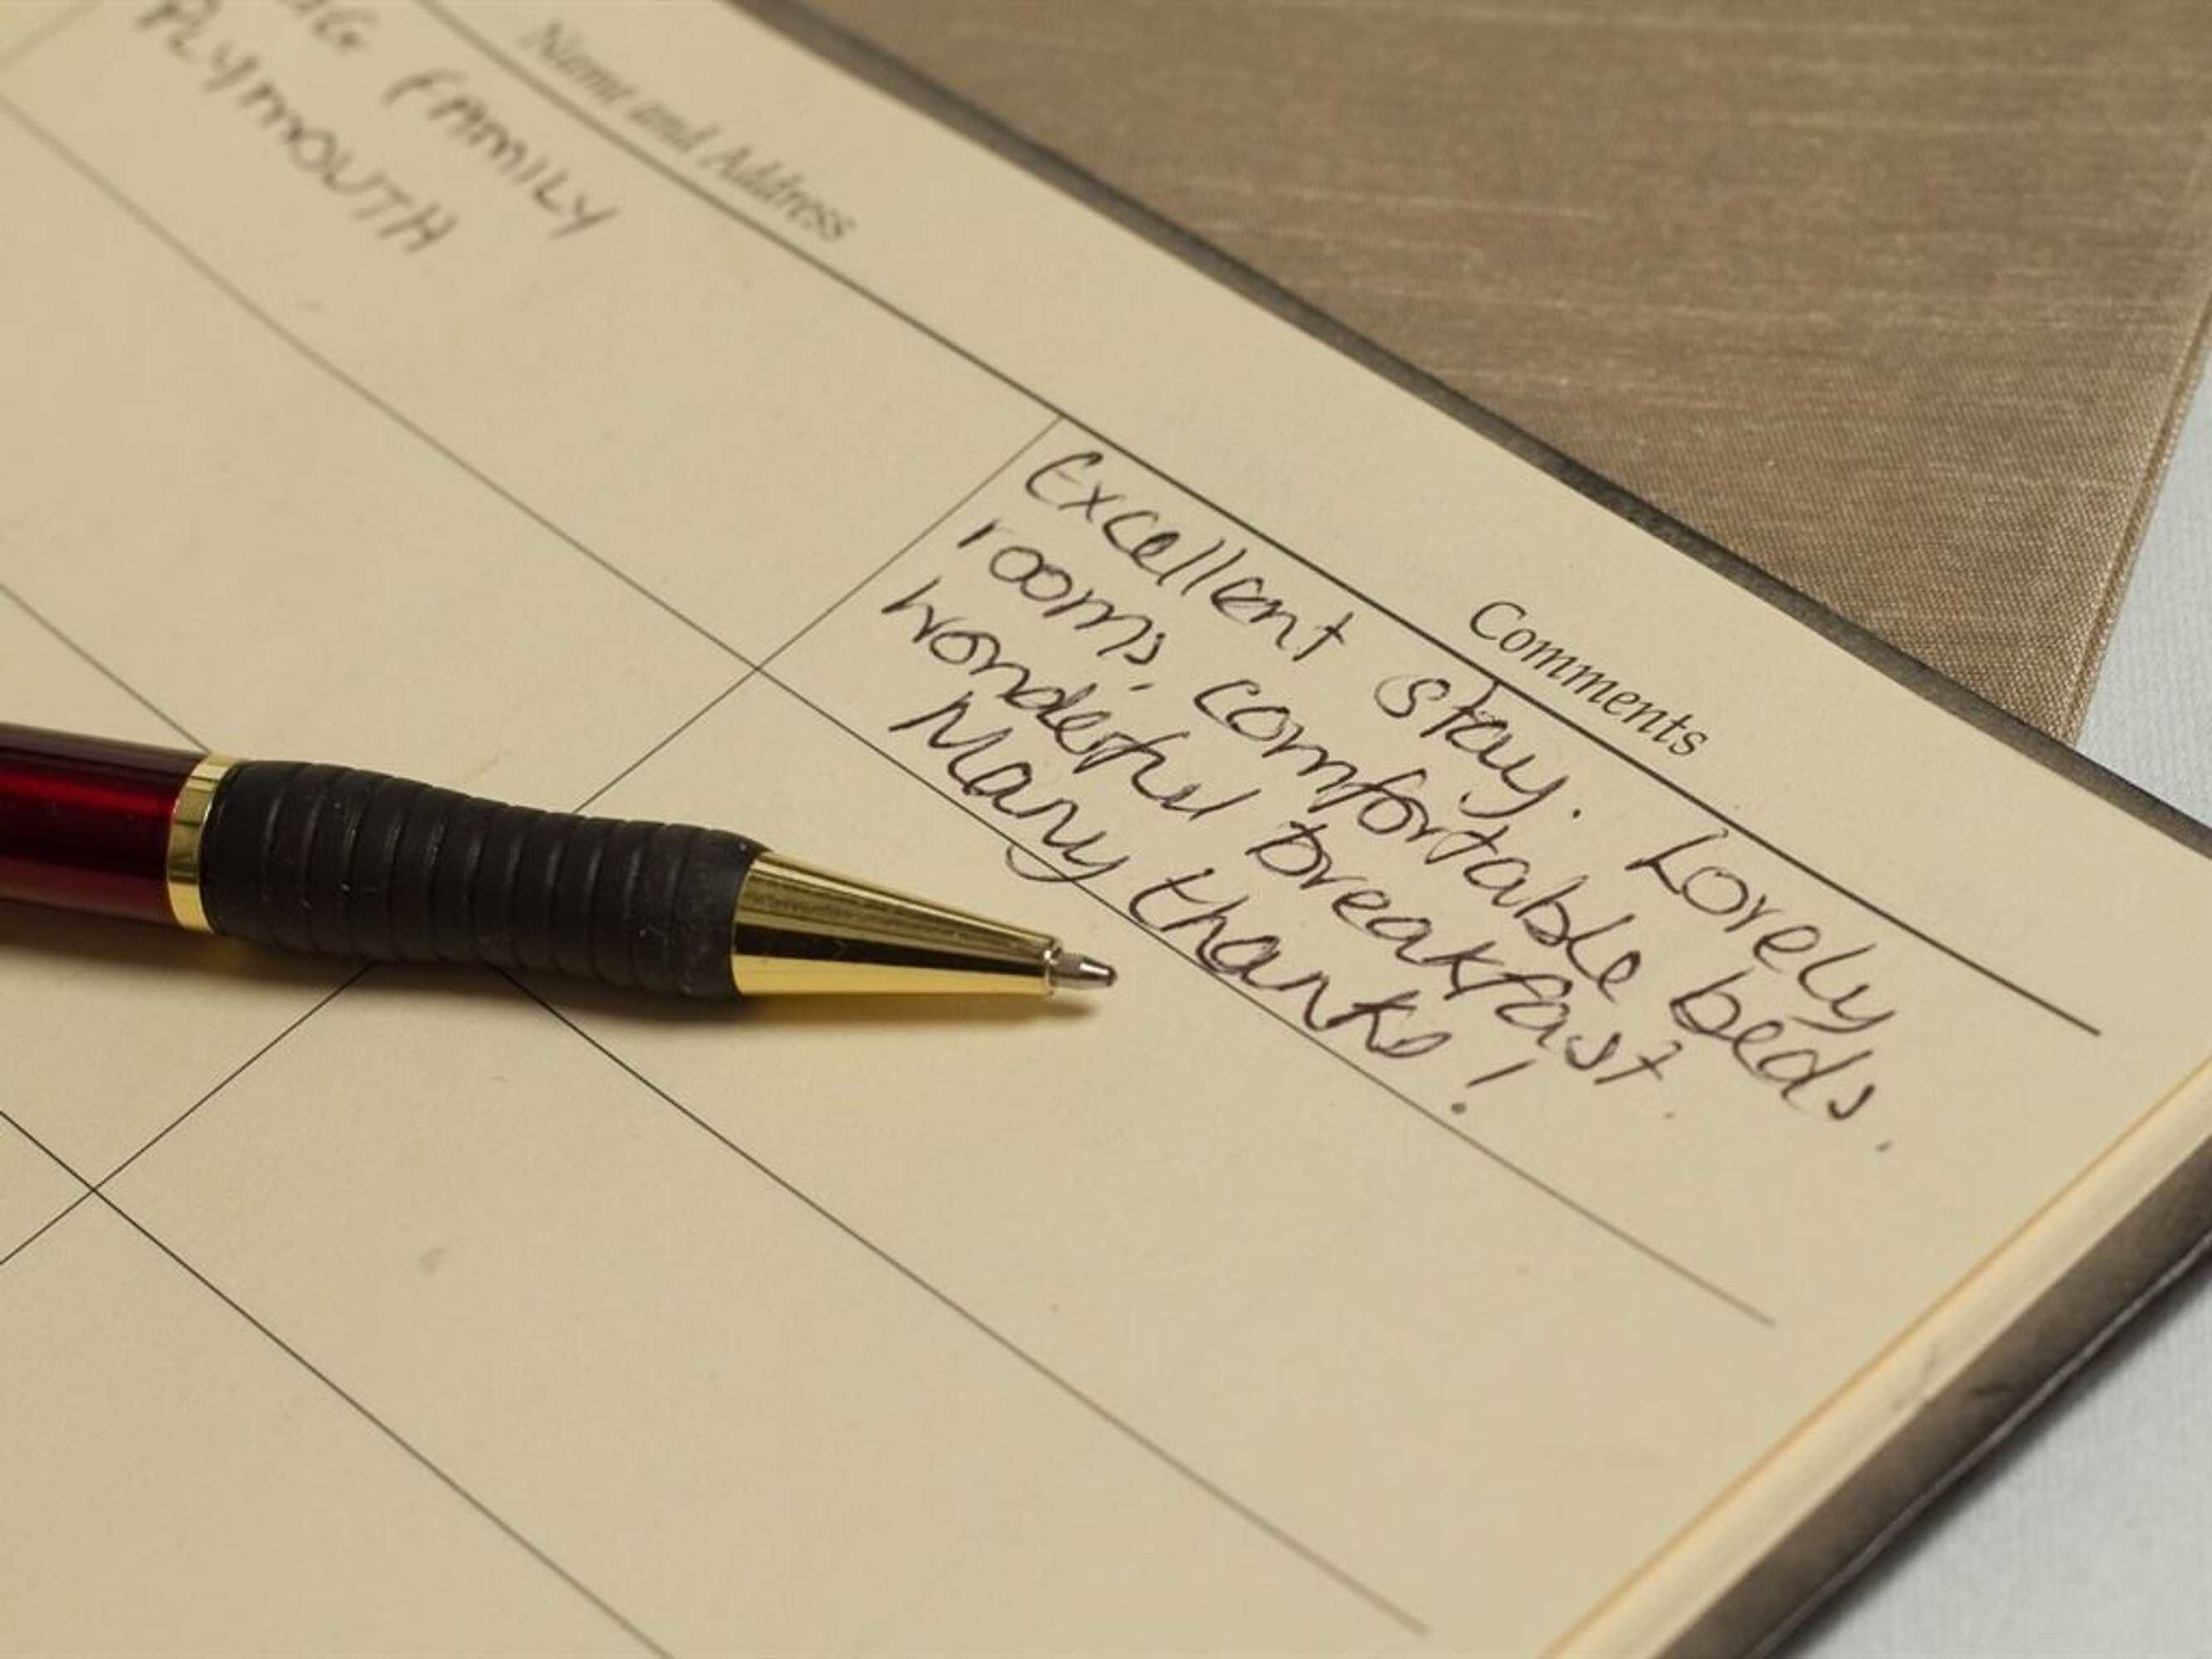 Name and Address
Comments
FAMILY
PLYMOUTH
Excellent stay. Lovely
rooms, comfortable beds.
wonderful breakfast.
Many thanks!